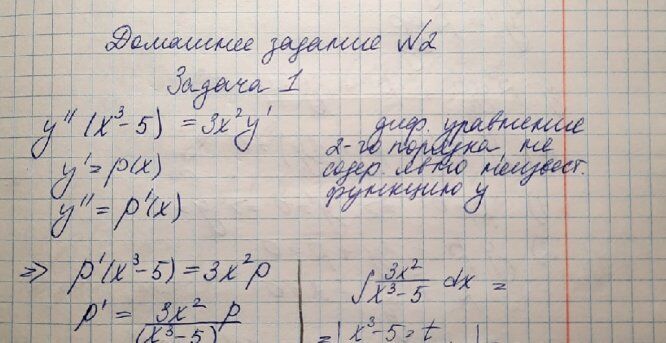 Домашнее задание №2
Задача 1
y'' (x³-5) = 3x²y'
y' = p(x)
y'' = p'(x)
диф. уравнение
2-го порядка, не
содер. явно неизвест.
функцию y
=> p'(x³-5) = 3x²p
p' = 3x²/(x³-5) p
∫ 3x²/(x³-5) dx =
= | x³-5 = t |